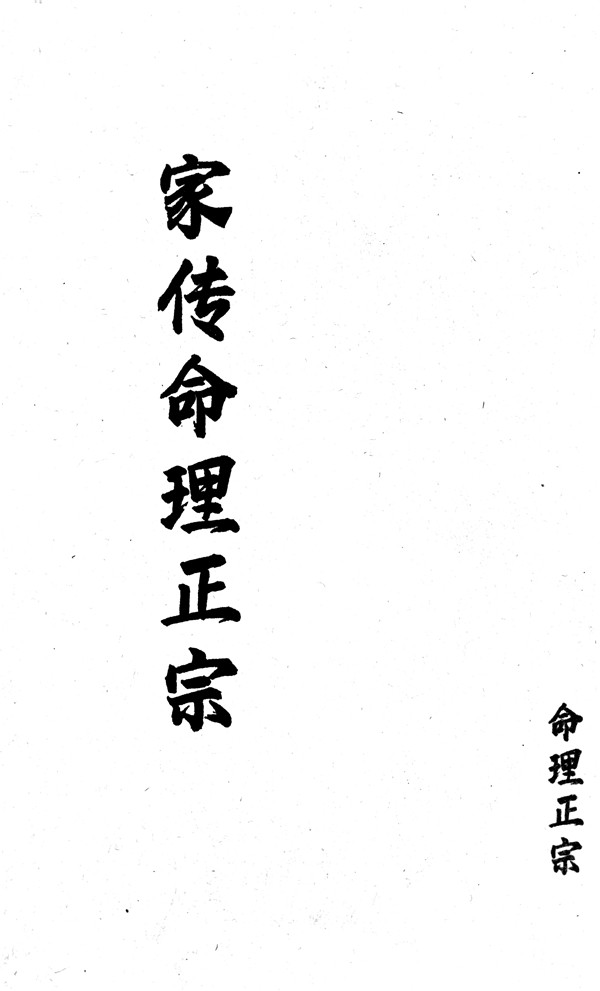 家传命理正宗
命理正宗